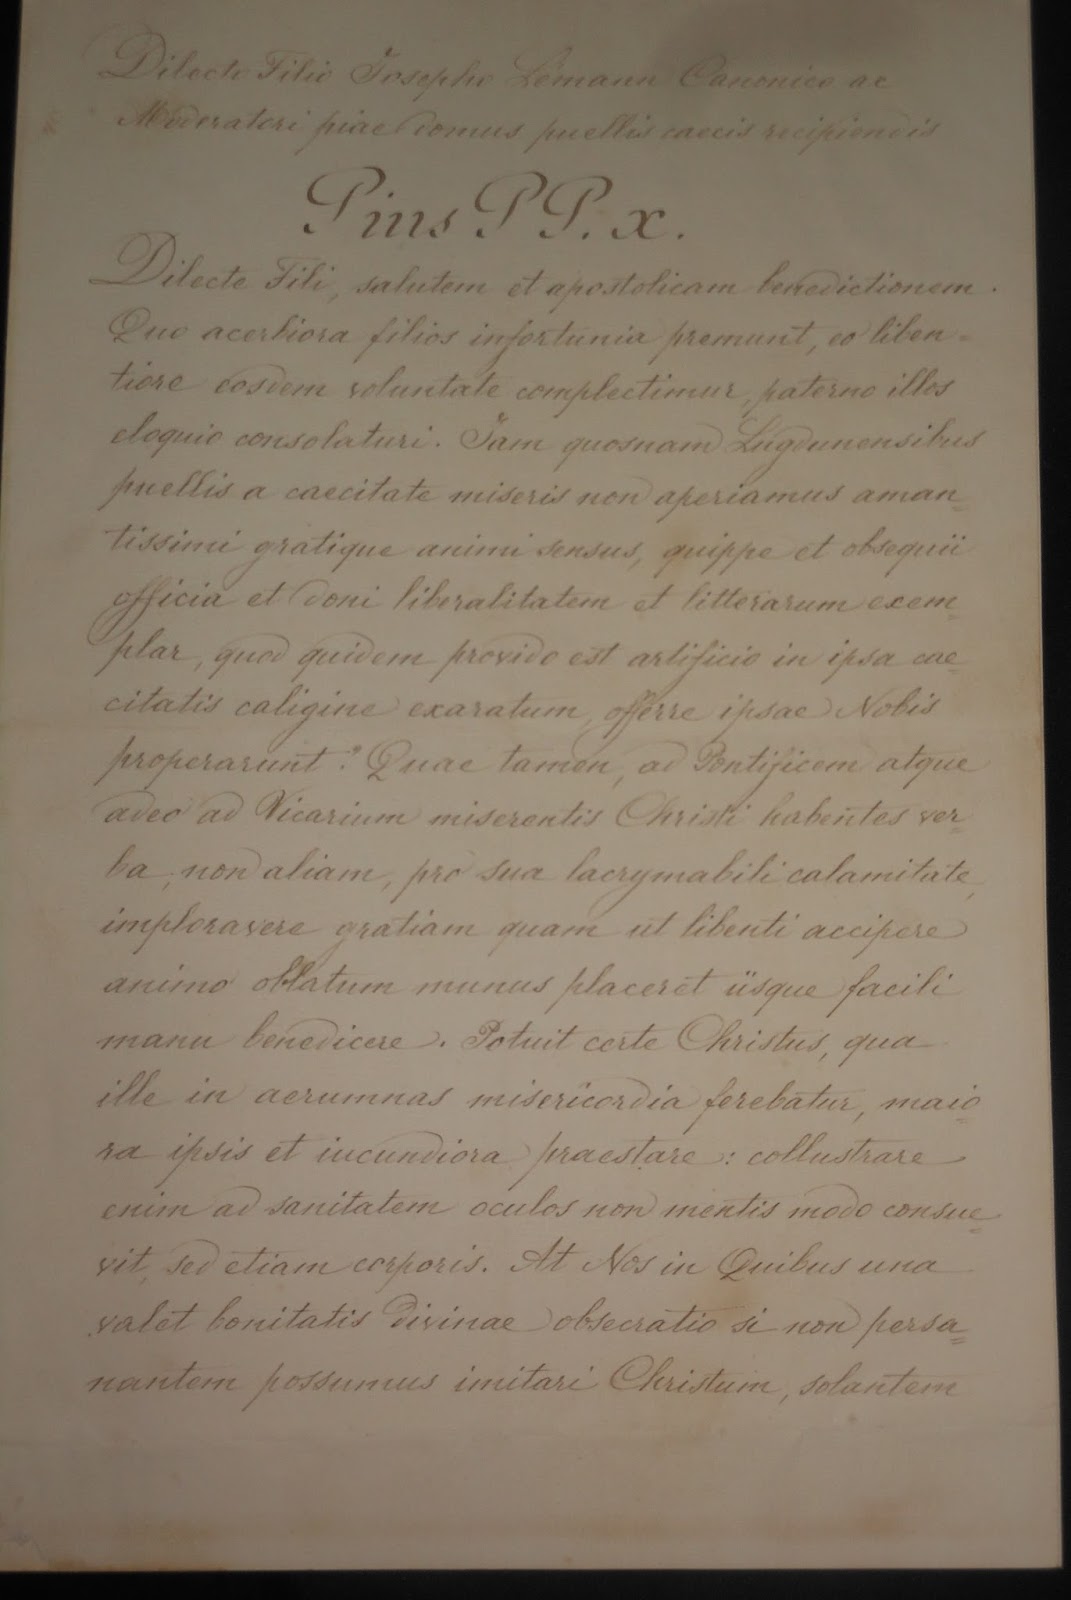 Dilecto Filio Josepho Lémann Canonico ac
Moderatori piae domus puellis caecis recipiendis
Pius PP. X.
Dilecte Fili, salutem et apostolicam benedictionem.
Quo acerbiora filios infortunia premunt, eo liben=
tiore eosdem voluntate complectimur, paterno illos
eloquio consolaturi. Jam quosnam Lugdunensibus
puellis a caecitate miseris non aperiamus aman=
tissimi gratique animi sensus, quippe et obsequii
officia et doni liberalitatem et litterarum exem=
plar, quod quidem provido est artificio in ipsa cae=
citatis caligine exaratum, offerre ipsae Nobis
properarunt? Quae tamen, ad Pontificem atque
adeo ad Vicarium miserentis Christi habentes ver=
ba, non aliam, pro sua lacrymabili calamitate,
imploravere gratiam quam ut libenti accipere
animo oblatum munus placeret iisque facili
manu benedicere. Potuit certe Christus, qua
ille in aerumnas misericordia ferebatur, maio=
ra ipsis et iucundiora praestare: collustrare
enim ad sanitatem oculos non mentis modo consue=
vit, sed etiam corporis. At Nos in Quibus una
valet bonitatis Divinae obsecratio si non persa=
nantem possumus imitari Christum, solantem